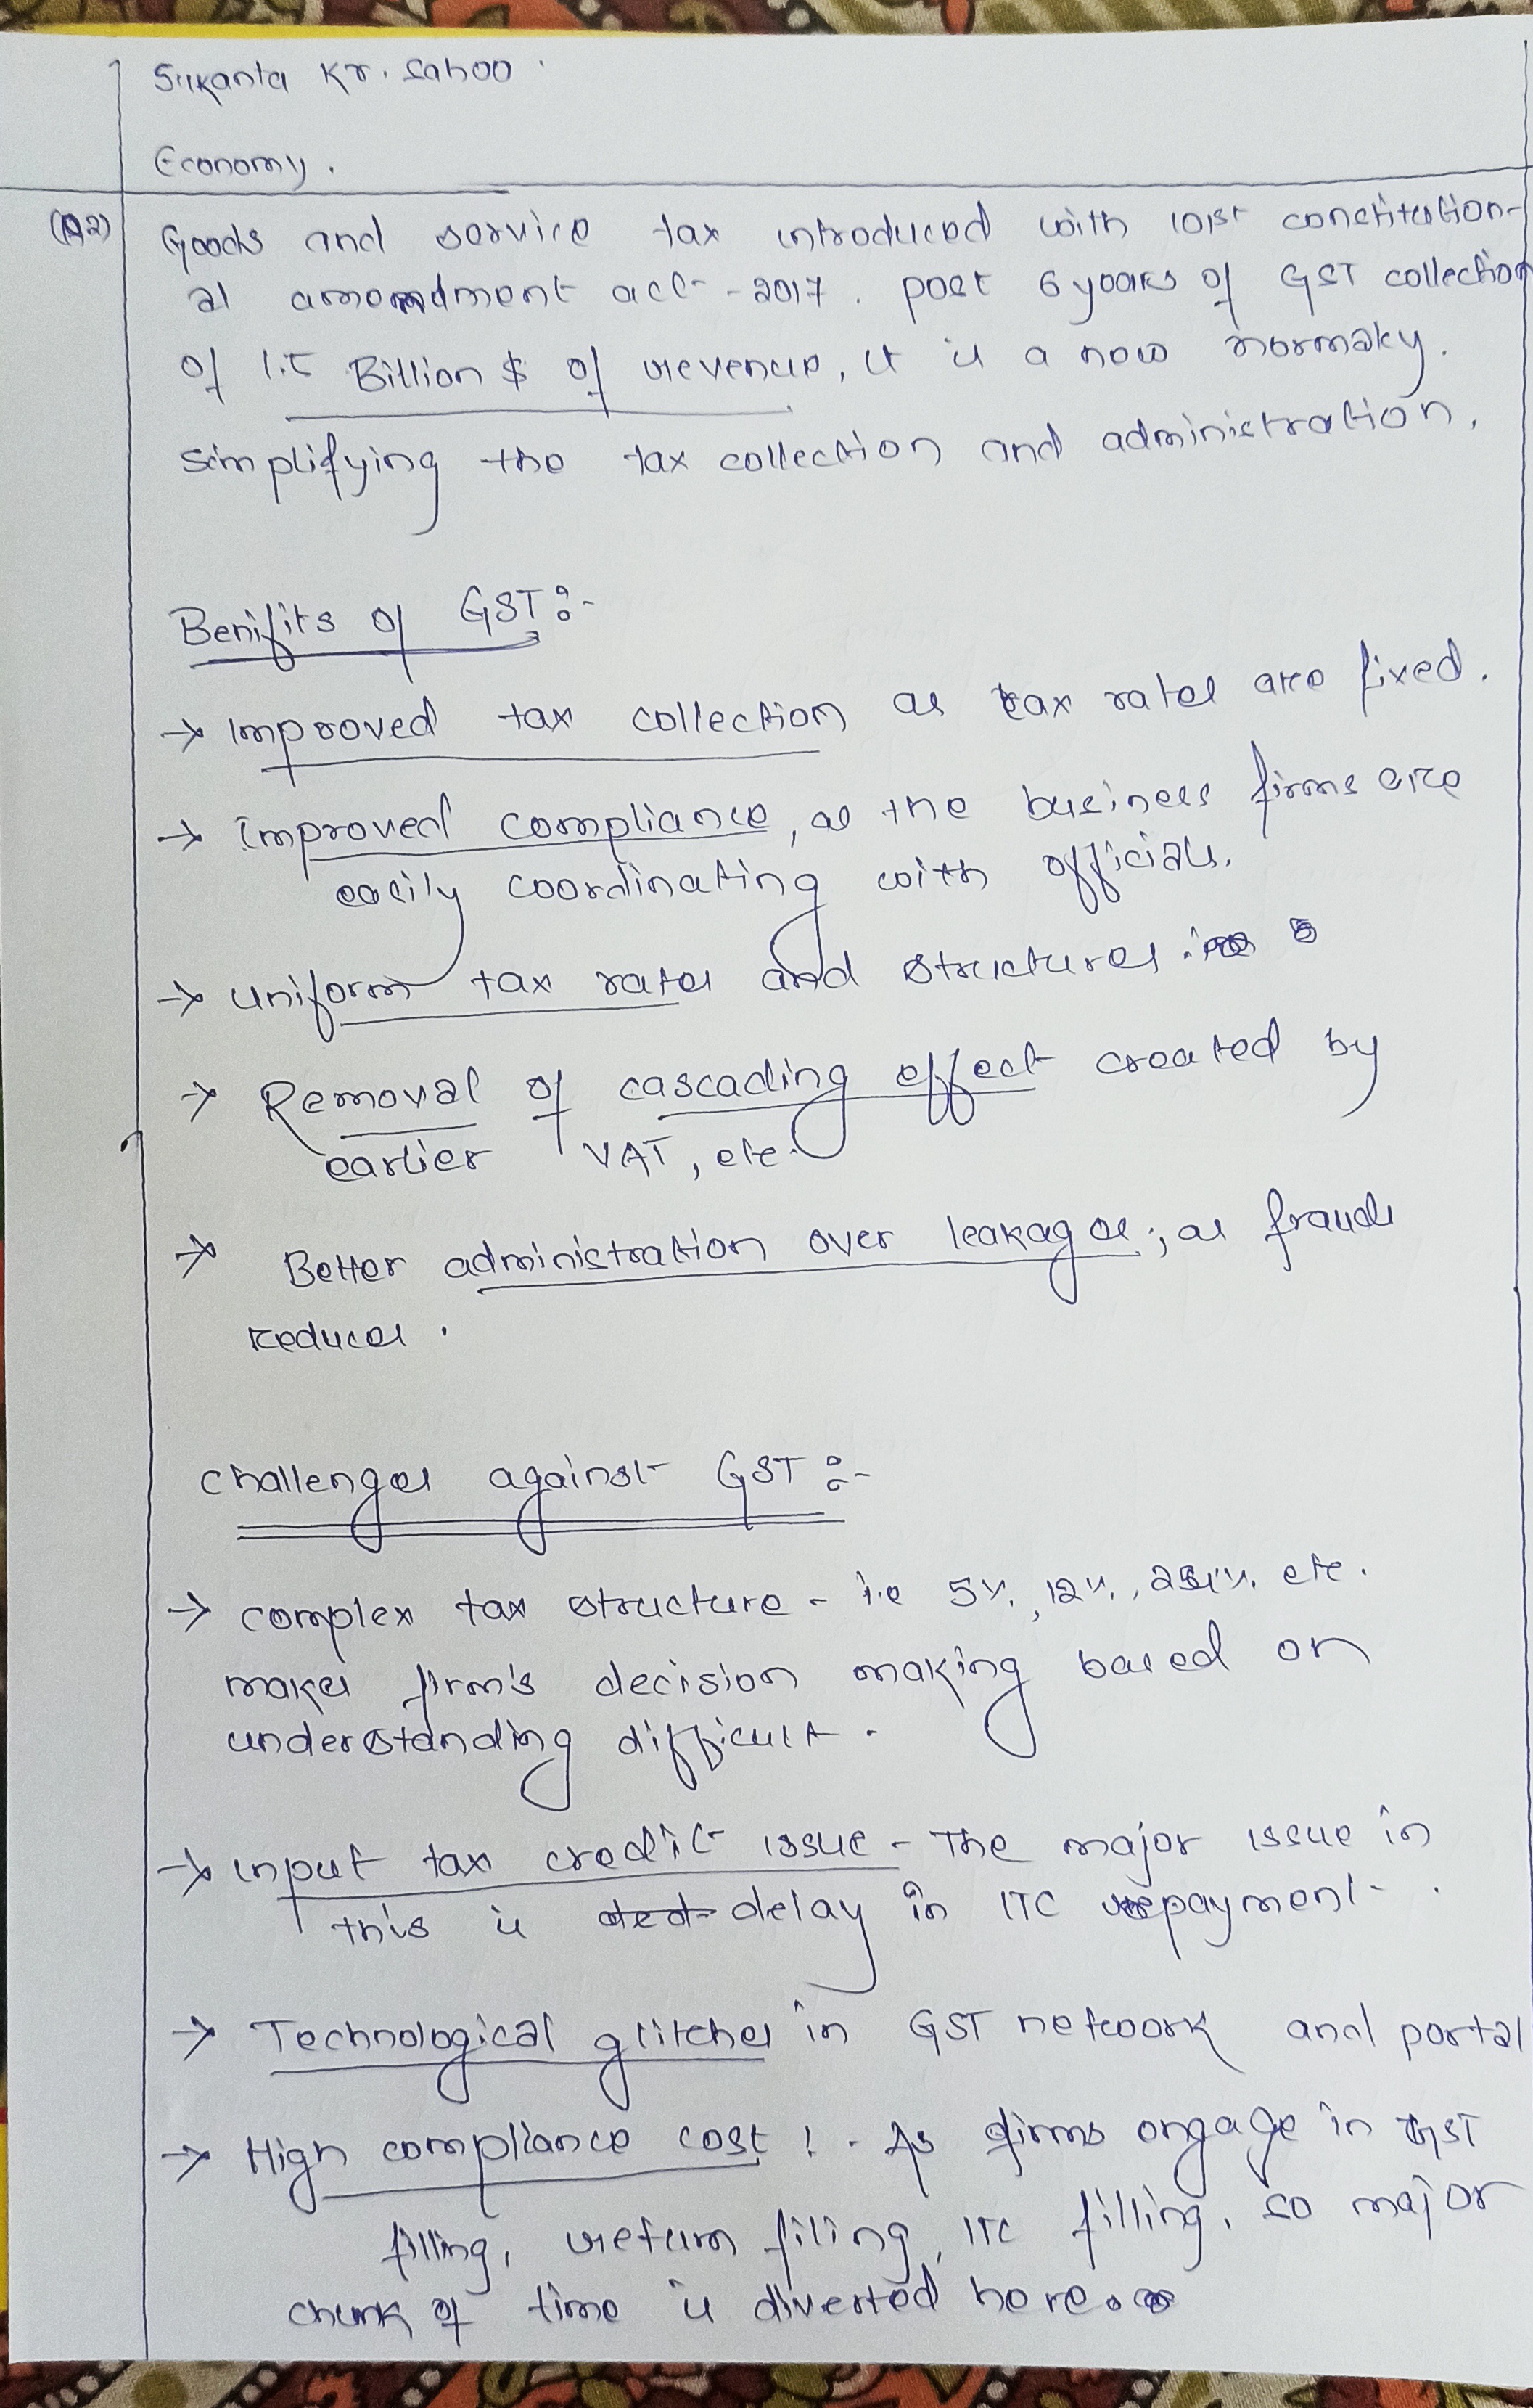 Sukanta Kr. Sahoo.
Economy.
(Q2) Goods and service tax introduced with 101st constitution-
al amendment act - 2017. post 6 years of GST collection
of 1.5 Billion $ of revenue, it is a new normalcy.
simplifying the tax collection and administration.
Benifits of GST :-
→ Improved tax collection as tax rates are fixed.
→ Improved compliance, as the business firms are
easily coordinating with officials.
→ uniform tax rates and structures.
→ Removal of cascading effect created by
earlier VAT, etc.
→ Better administration over leakages; as frauds
reduces.
Challenges against GST :-
→ complex tax structure - i.e 5%, 12%, etc.
makes firm's decision making based on
understanding difficult.
→ input tax credit issue - The major issue in
this is delay in ITC repayment.
→ Technological glitches in GST network and portal
→ High compliance cost :- As firms engage in GST
filling, return filing, ITC filling, so major
chunk of time is diverted here.